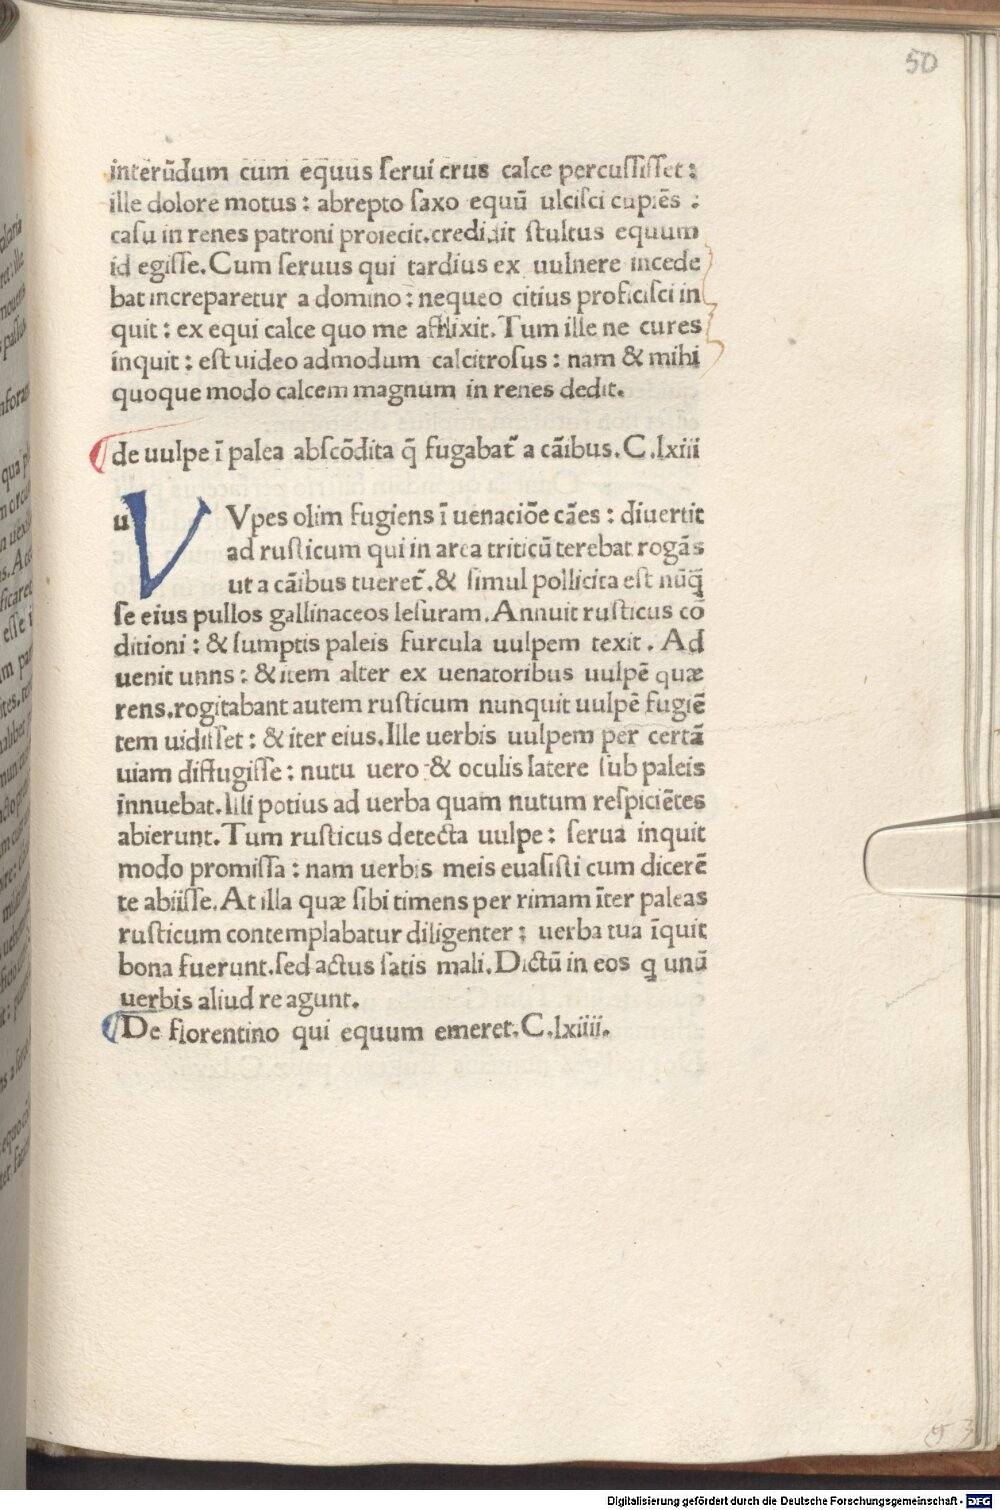 50
interūdum cum equus ſerui crus calce percuſſiſſet:
ille dolore motus: abrepto ſaxo equū ulciſci cupiēs:
caſu in renes patroni proiecit.credidit ſtultus equum
id egiſſe.Cum ſeruus qui tardius ex uulnere incede
bat increparetur a domino: nequeo citius proficiſci in
quit: ex equi calce quo me afflixit.Tum ille ne cures
inquit: eſt uideo admodum calcitroſus: nam & mihi
quoque modo calcem magnum in renes dedit.
de uulpe ī palea abſcōdita q̄ fugabat᷑ a cāibus.C.lxiii
u V Vpes olim fugiens ī uenaciōe cāes: diuertit
ad ruſticum qui in area triticū terebat rogās
ut a cāibus tueret᷑.& ſimul pollicita eſt nūq̄
ſe eius pullos gallinaceos leſuram.Annuit ruſticus cō
ditioni: & ſumptis paleis furcula uulpem texit. Ad
uenit unns: & item alter ex uenatoribus uulpē quæ
rens.rogitabant autem ruſticum nunquit uulpē fugiē
tem uidiſſet: & iter eius.Ille uerbis uulpem per certā
uiam diffugiſſe: nutu uero & oculis latere ſub paleis
innuebat.Illi potius ad uerba quam nutum reſpiciētes
abierunt.Tum ruſticus detecta uulpe: ſerua inquit
modo promiſſa: nam uerbis meis euaſiſti cum dicerē
te abiiſſe.At illa quæ ſibi timens per rimam īter paleas
ruſticum contemplabatur diligenter: uerba tua īquit
bona fuerunt.ſed actus ſatis mali.Dictū in eos q unū
uerbis aliud re agunt.
De florentino qui equum emeret.C.lxiiii.
Digitalisierung gefördert durch die Deutsche Forschungsgemeinschaft - DFG